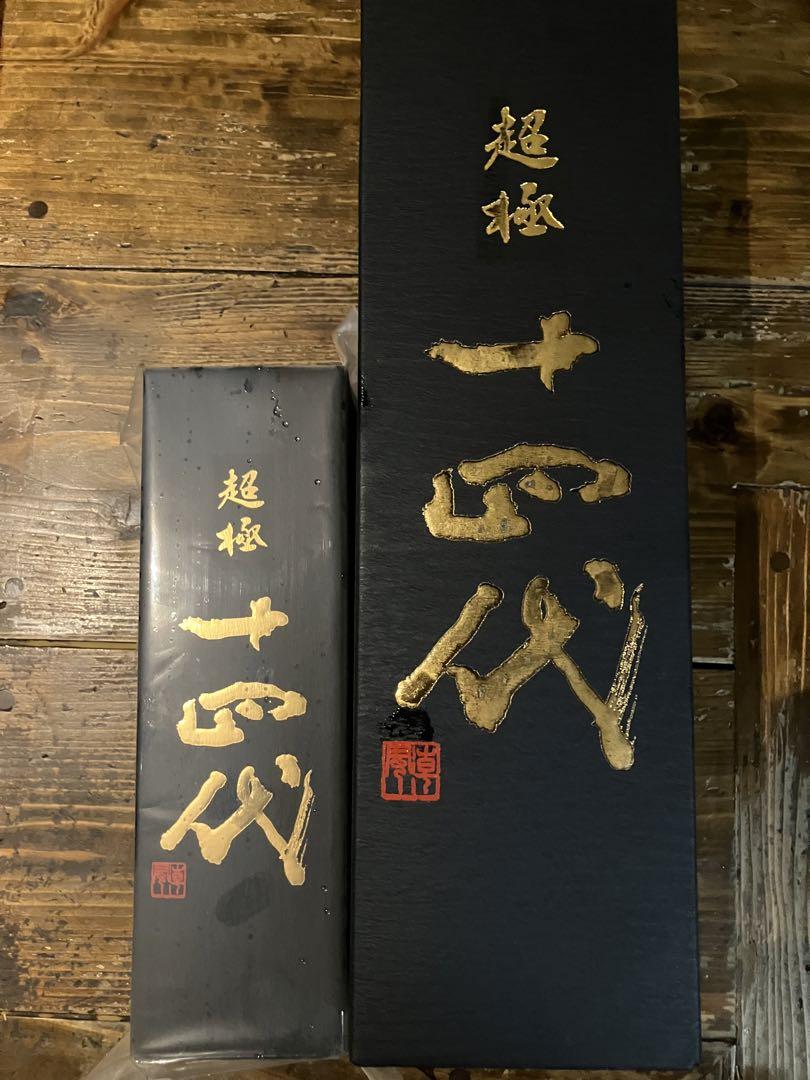 超極
十四代
超極
十四代